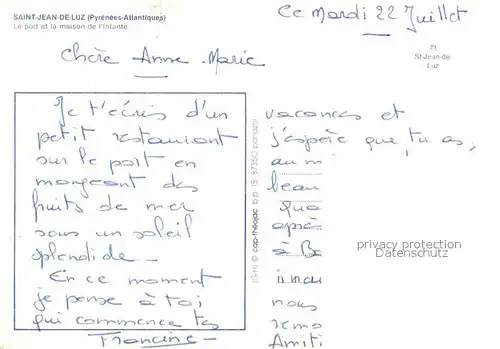 SAINT-JEAN-DE-LUZ (Pyrénées-Atlantiques)
Le port et la maison de l'Infante
Ce Mardi 22 Juillet
71
St-Jean-de-
Luz
Chère Anne-Marie
Je t'écris d'un
petit restaurant
sur le port en
mangeant des
fruits de mer
sous un soleil
splendide.
En ce moment
je pense à toi
qui commence tes
Francine
vacances et
j'espère que tu as,
au mi
beau
que
après
à Be
nous
remo
Amiti
cap-théojac b.p. 15. 87350 panazol
privacy protection
Datenschutz